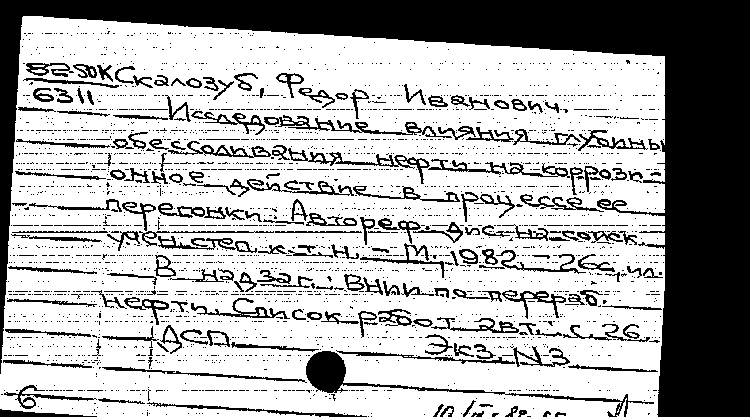 Скалозуб, Федор Иванович.
6311
Исследование влияния глубины
обессоливания нефти на коррози-
онное действие в процессе ее
перегонки: Автореф. дис. на соиск.
учен. степ. к. т. н. - М., 1982. - 26с., ил.
В надзаг.: ВНИИ по перераб.
нефти. Список работ авт.: с. 26.
ДСП.
Экз. N3
6